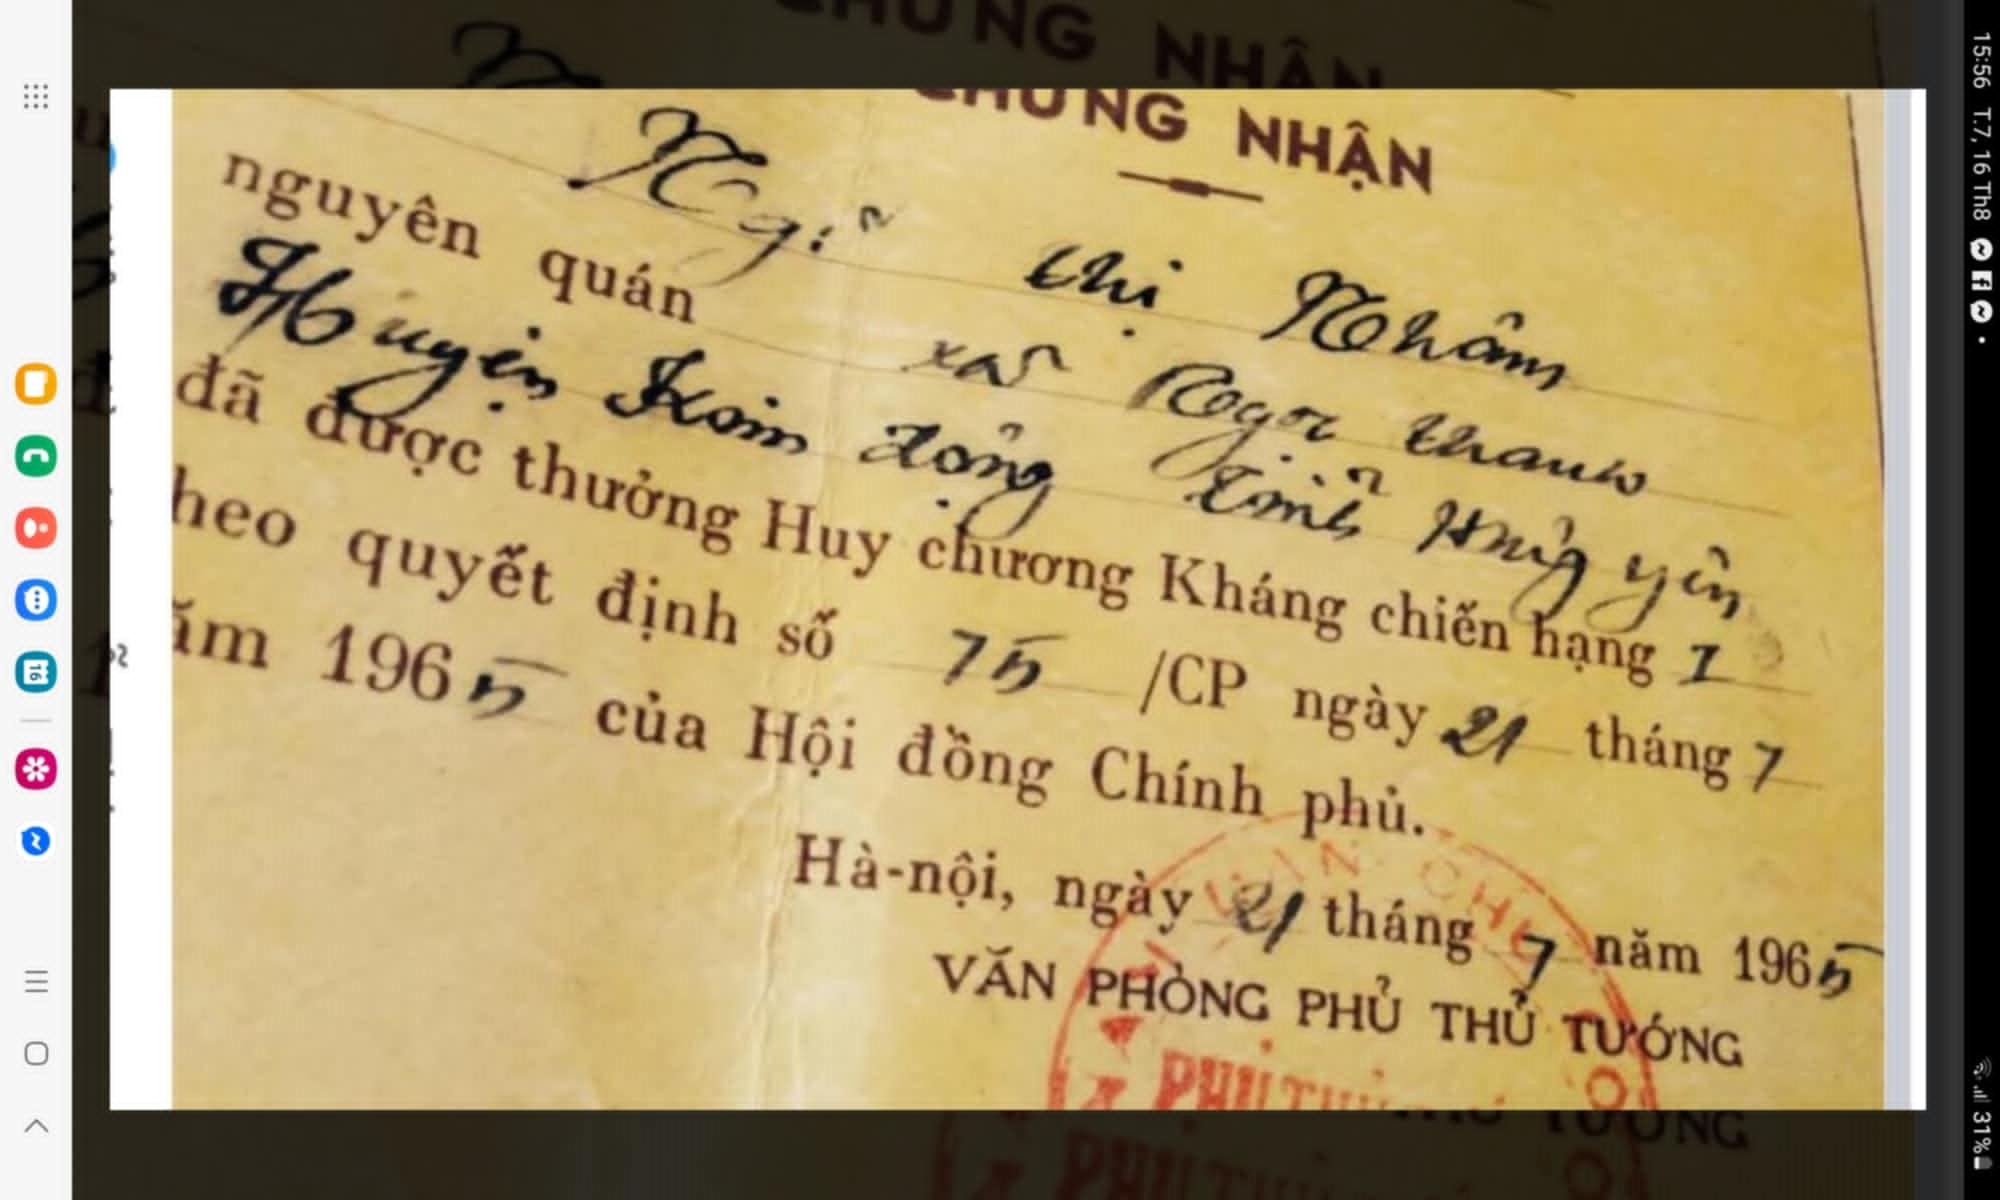 CHỨNG NHẬN
thị Nhâm
nguyên quán xã Ngọc thanh
Huyện Kim động tỉnh Hưng yên
đã được thưởng Huy chương Kháng chiến hạng I
heo quyết định số 75 /CP ngày 21 tháng 7
ăm 1965 của Hội đồng Chính phủ.
Hà-nội, ngày 21 tháng 7 năm 1965
VĂN PHÒNG PHỦ THỦ TƯỚNG
PHỦ THỦ TƯỚNG
15:56 T.7, 16 Th8
31%
16